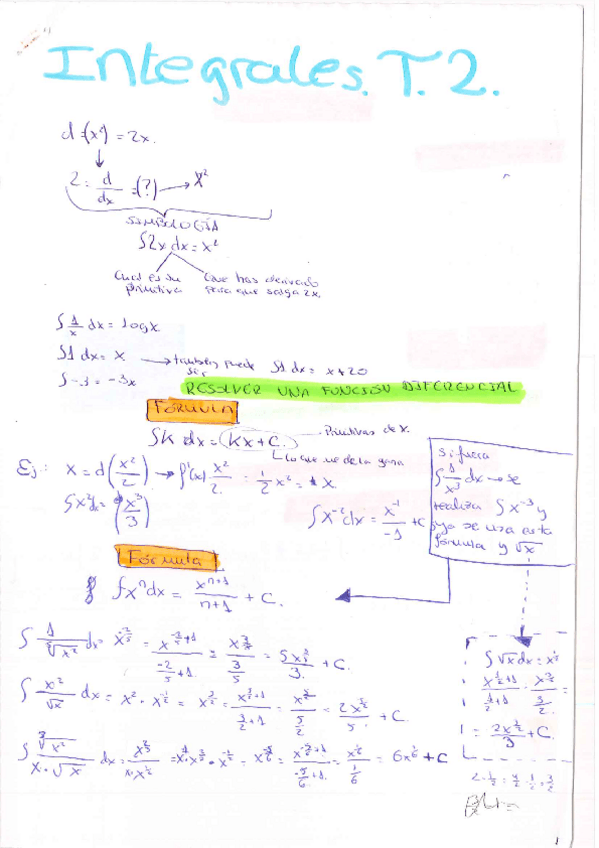 Integrales. T. 2.
d(x²) = 2x.
2 = d/dx = (?) → x²
SIMBOLOGÍA
∫2x dx = x²
Cual es su primitiva
Que has derivado para que salga 2x.
∫ 1/x dx = log x.
∫1 dx = x → también puede ser ∫1 dx = x+20
∫-3 = -3x
RESOLVER UNA FUNCIÓN DIFERENCIAL
FÓRMULA
∫K dx = Kx + C.
Primitivas de x.
Lo que me de la gana
Ej: x = d(x²/2) → f'(x) x²/2 = 1/2 x² = 1x
∫x² dx = (x³/3)
∫x⁻² dx = x⁻¹/-1 + C
Si fuera
∫ 1/x³ dx → se
realiza ∫x⁻³ y
ya se usa esta
fórmula y √x
Fórmula
∫xⁿ dx = xⁿ⁺¹/n+1 + C.
∫ 1/⁵√x² dx = x^-2/5 = x^-2/5+1/-2/5+1 = x^3/5/3/5 = 5x^3/5/3 + C.
∫ x²/√x dx = x² · x^-1/2 = x^3/2 = x^3/2+1/3/2+1 = x^5/2/5/2 = 2x^5/2/5 + C.
∫ ³√x²/x·√x dx = x^2/3/x·x^1/2 = x^-5/6+1/-5/6+1 = x^1/6/1/6 = 6x^1/6 + C
∫√x dx = x^1/2
x^1/2+1/1/2+1 = x^3/2/3/2 =
= 2x^3/2/3 + C.
2-1/2 = 4/2-1/2 = 3/2
1